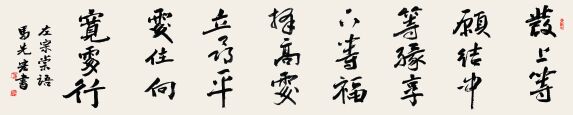 發上等
願結中
等緣享
下等福
擇高處
立尋平
處住向
寬處行
左宗棠語
馬先書